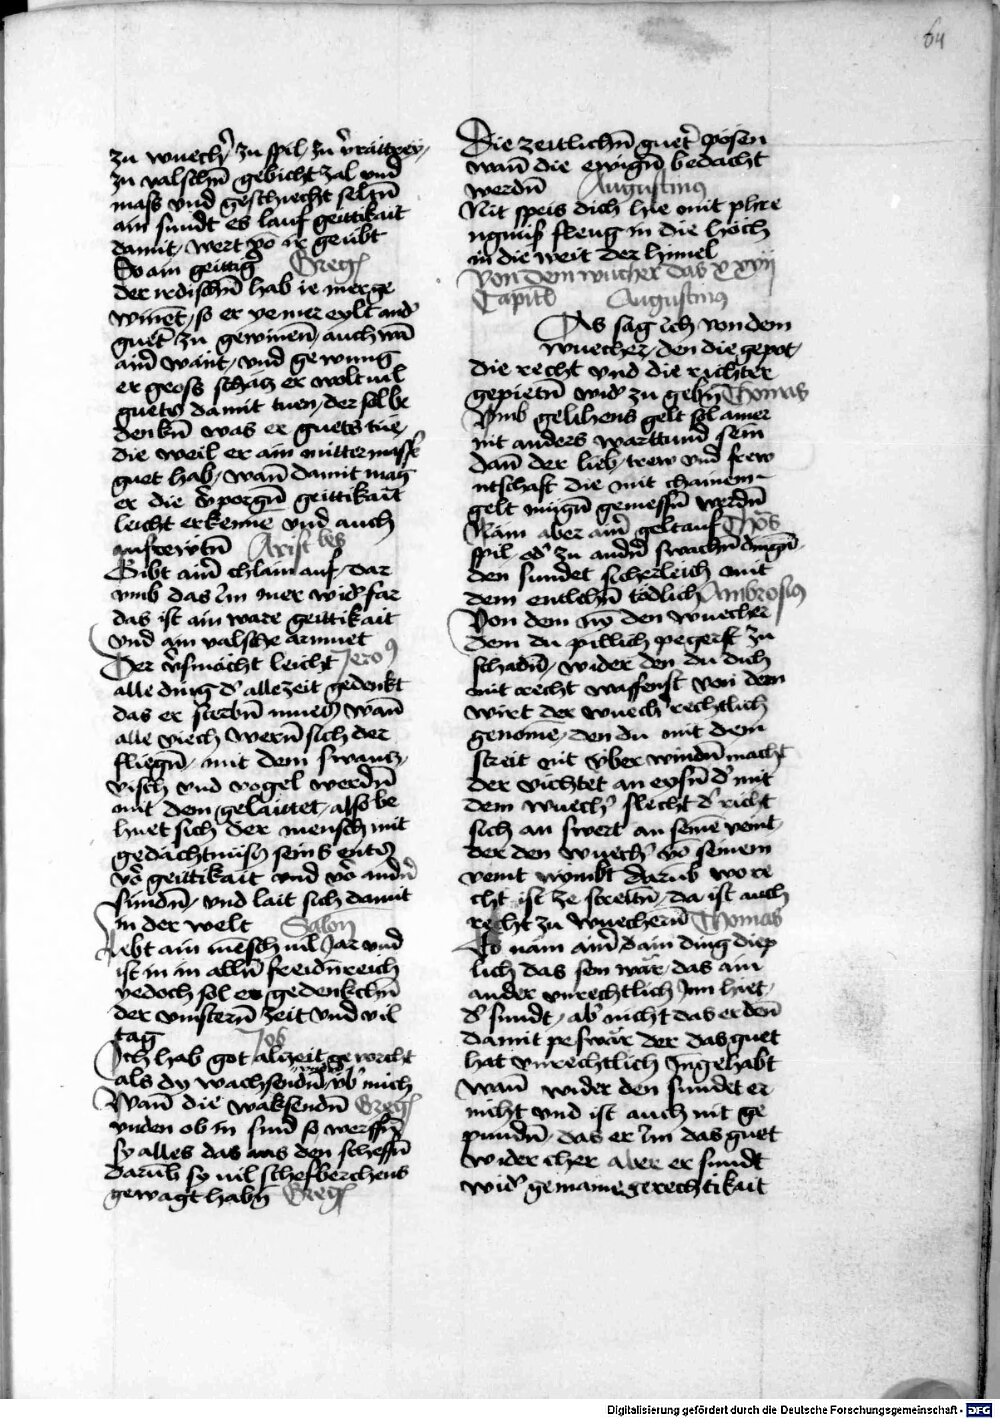 64
zu wuech', zu spil, zu v'rättrey,
zu valschn̄ gebicht zal vnd
mass vnd geschuecht seltn̄
ain sundt es lauf geittikait
damit, wert vō ir geübt
So ain geittig' Greg
der irdischn̄ hab ie merge
winēt, so er ye mer eylt and'
guet' zu gewinen̄, auch wā
aim̄ wānt, vnd gewung
er gross schatz er wolt vil
guets damit tuen, der sol be
denkn̄ was er guets tue,
die weil er ain mittermass
guet hab, wan̄ damit mag
er die v'porgn̄ geittikait
leicht erkennē vnd auch
aufreytn̄ Aristotiles
Gibt aim̄ chlain auf, dar
vmb das Im mer wid' far
das ist ain ware geittikait
vnd ain valsche armuet
Der v'smächt leicht Jero9
alle ding d' allezeit gedenkt
das er sterbn̄ mues wan̄
alle viech wern̄ sich der
fliegn̄, mit dem swantz,
visch vnd vogel werdn̄
mit dem gelaittet, also be
huet sich der mensch mit
gedächtnüss seins entes
vō geittikait vnd vō andn̄
sundn̄, vnd lait sich damit
in der welt Salon
Lebt ain mēsch vil Jar vnd
ist in in alln̄ freidnreich
yedoch sol er gedenkchn̄
der vinstern̄ zeit vnd vil
tag Job
Ich hab got alzeit geworcht
als dy wachsendn̄ vb' mich
Wan̄ die waksendn̄ Greg
vnden ob in sind so werffn̄
sy alles das aus den scheffn̄
darūb sy vil schefberchens
gewagt habn̄ Greg
Die zeitlichn̄ guet' pösen
wan̄ die ewign̄ bedacht
werdn̄ Augustinus
Nit speis dich hie mit phre
ngnuss fleug in die höch
in die weit der himel
Von dem wucher das xxvij
Capitl Augustinus
Das sag ich von dem
wuecher, den die gepot,
die recht vnd die richter
gepietn̄ wid' zu gebn̄ Thomas
Vmb gelihens gelt sol ainer
nit anders warttund sein
dan̄ der lieb, trew vnd frew
ntschaft die mit chainem
gelt mügn̄ gemessn̄ werdn̄
Näm aber aim̄ gelt auf Thos
spil, od' zu andn̄ swachn̄ dingn̄
den sundet sicherleich mit
dem entlehn̄ tödlich Ambrosius
Von dem ny den wuecher
dem du pillich pegerst zu
schadn̄, wider den du dich
mit recht waffenst von dem
wirt der wuech' rechtlich
genomē, den du mit dem
streit nit vber windn̄ macht
der vichtet an eysn̄ d' mit
dem wuech' slecht d' richt
sich an swert an seinē veint
der den wuech' vō seinem
veint nymbt darūb wo re
cht ist ze streitn̄, da ist auch
recht zu wuechern̄ Thomas
So näm aim̄ dain ding diep
lich das sein wär, das ain
ander vnrechtlich Inn hiet,
d' sundt, ab' nicht das er den
damit peswär der das guet
hat vnrechtlich Ingehabt
wan̄ wider den sundet er
nicht vnd ist auch nit ge
pundn̄, das er Im das guet
wider cher aber er sundt
wid' gemaine gerechtikait
Digitalisierung gefördert durch die Deutsche Forschungsgemeinschaft - DFG